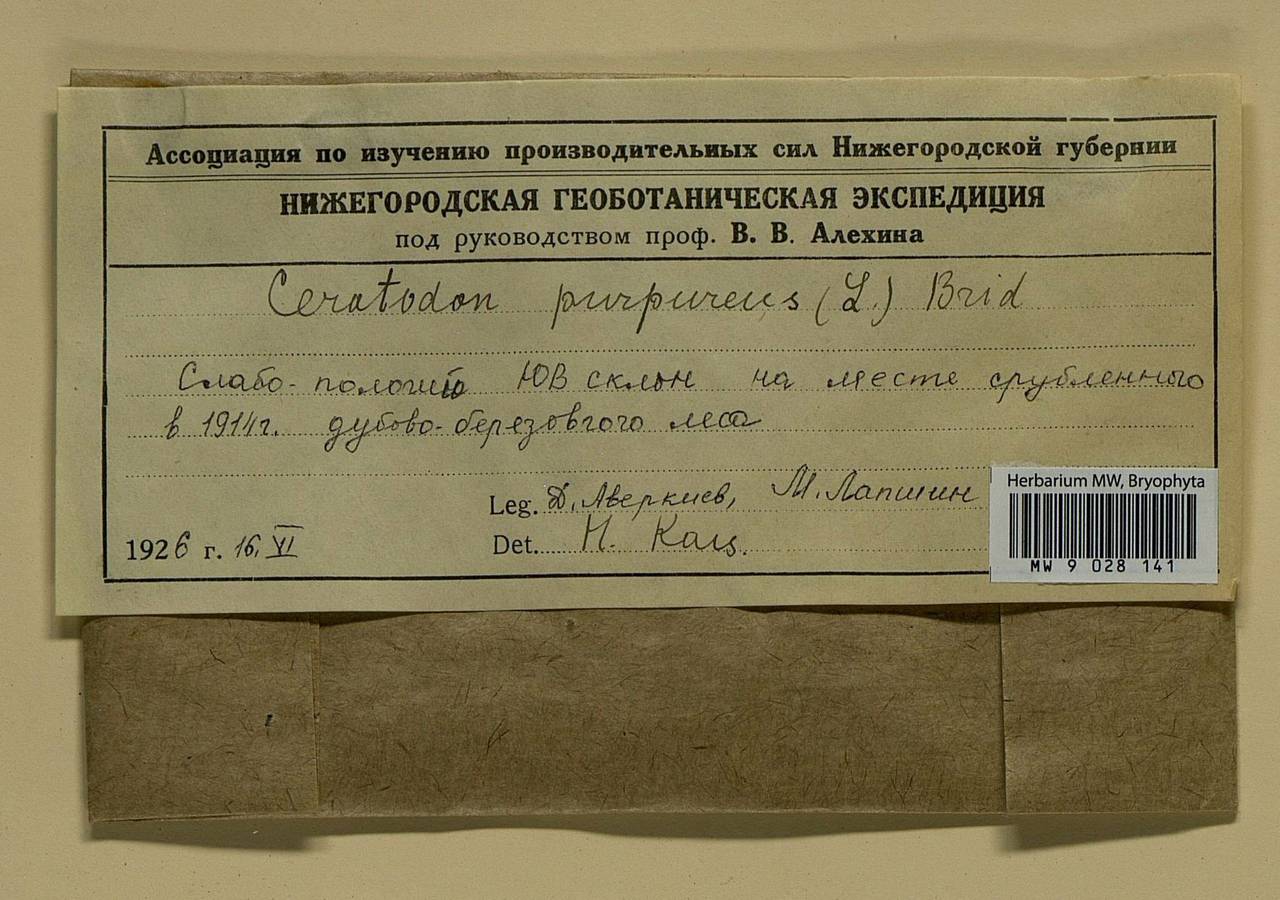 Ассоциация по изучению производительных сил Нижегородской губернии
НИЖЕГОРОДСКАЯ ГЕОБОТАНИЧЕСКАЯ ЭКСПЕДИЦИЯ
под руководством проф. В. В. Алехина
Ceratodon purpureus (L.) Brid
Слабо-пологий ЮВ склон на месте срубленного
в 1914г. дубово-березового леса
Leg. Д. Аверкиев, М. Лапшин
1926 г. 16. VI
Det. Н. Кац.
Herbarium MW, Bryophyta
MW 9 028 141